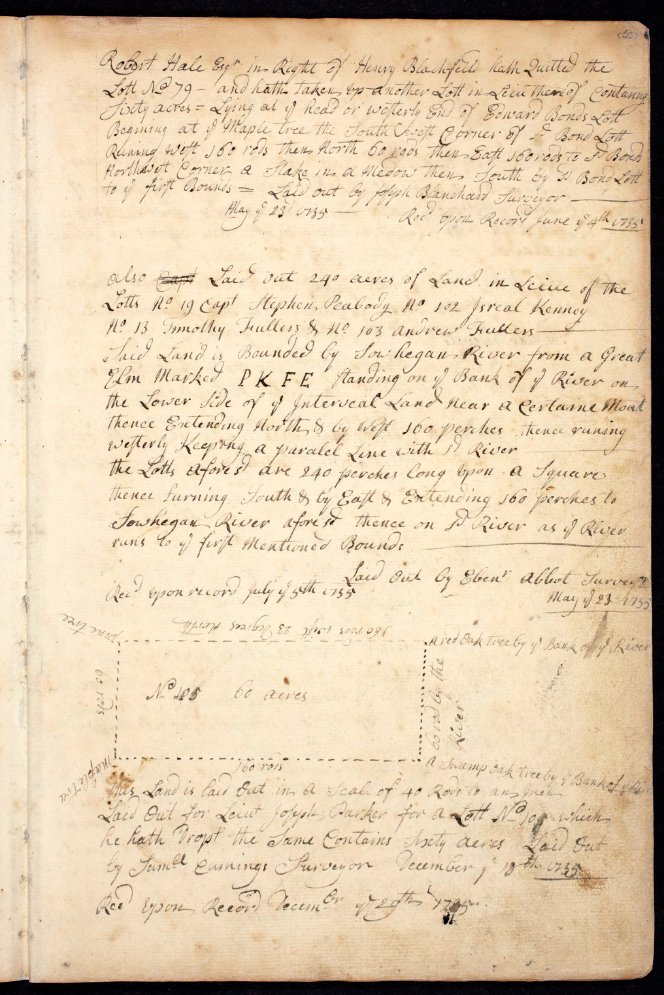 Robert Hale Esqr in Right of Henry Blackfeild hath Quitted the
Lott No 79 - and hath taken up another Lott in Lieu thereof Containg
Sixty acres = Lying at ye head or westerly End of Edward Bonds Lott
Begining at ye Maple tree the South West Corner of sd Bond Lott
Runing West 160 rods then North 60 rods then East 160 rods to sd Bonds
Northwest Corner a Stake in a Medow then South by sd Bond Lott
to ye first Bounds = Laid out by Joseph Blanchard Surveyor
May ye 23d 1735 — Recd upon Record June ye 4th 1735
also Capt Laid out 240 acres of Land in Leiue of the
Lotts No 19 Capt Stephen Peabody No 102 Jsreal Kenney
No 13 Timothy Fullers & No 103 andrew Fullers
Said Land is Bounded by Sowhegan River from a Great
Elm Marked P K F E Standing on ye Bank of ye River on
the Lower Side of ye Interveal Land Near a Certaine Mout
thence Extending North & by West 160 perches thence runing
westerly Keeping a paralel Line with sd River
the Lotts aforesd are 240 perches long upon a Square
thence turning South & by East & Extending 160 perches to
Sowhegan River aforesd thence on sd River as ye River
runs to ye first Mentioned Bounds
Laid out by Ebenr Abbot Surveyr
Recd upon record July ye 5th 1735
May ye 23 1735
pine tree
160 rods
23 Degrees North
a red Oak tree by ye Bank of ye River
60 rods
No 105 60 acres
60 rod by the
River
Maple tree
160 rods
a Swamp Oak tree by ye Bank of ye River
this Land is laid Out in a Scale of 40 Rods to an Inch
Laid Out for Leiut Joseph Parker for a Lott No 105 which
he hath Dropt the Same Contains Sixty acres Laid Out
by Samll Cumings Surveyor December ye 18th 1735
Recd Upon Record Decembr ye 29th 1735